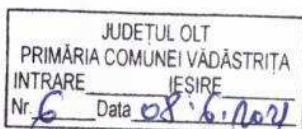 JUDEȚUL OLT
PRIMĂRIA COMUNEI VĂDĂSTRIȚA
INTRARE____IEȘIRE____
Nr. 6 Data 08.6.2021